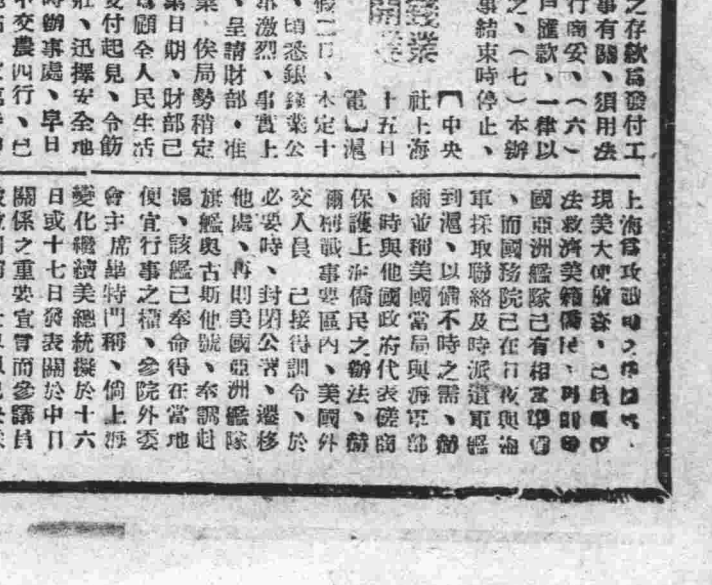 之存款為發付工
事有關、須用法
行商妥、(六)
戶匯款、一律以
之、(七)本辦
事結束時停止、
錢業
開業
【中央
社上海
十五日
電】滬
假二日、本定十
、頃悉銀錢業公
事激烈、事實上
、呈請財部、准
業、俟局勢稍定
業日期、財部已
為顧全人民生活
支付起見、令飭
莊、迅擇安全地
時辦事處、早日
交農四行、已
上海為攻
現美大使
法救濟美籍僑民、
國亞洲艦隊已有相當準備
、而國務院已在日夜與海
軍採取聯絡及時派遣軍艦
到滬、以備不時之需、赫
爾並稱美國當局與海軍部
、時與他國政府代表磋商
保護上海僑民之辦法、赫
爾稱戰事要區內、美國外
交人員、已接得訓令、於
必要時、封閉公署、遷移
他處、再則美國亞洲艦隊
旗艦奧古斯他號、奉調赴
滬、該艦已奉命得在當地
便宜行事之權、參院外委
會主席畢特門稱、倘上海
變化繼續美總統擬於十六
日或十七日發表關於中日
關係之重要宣言而參議員